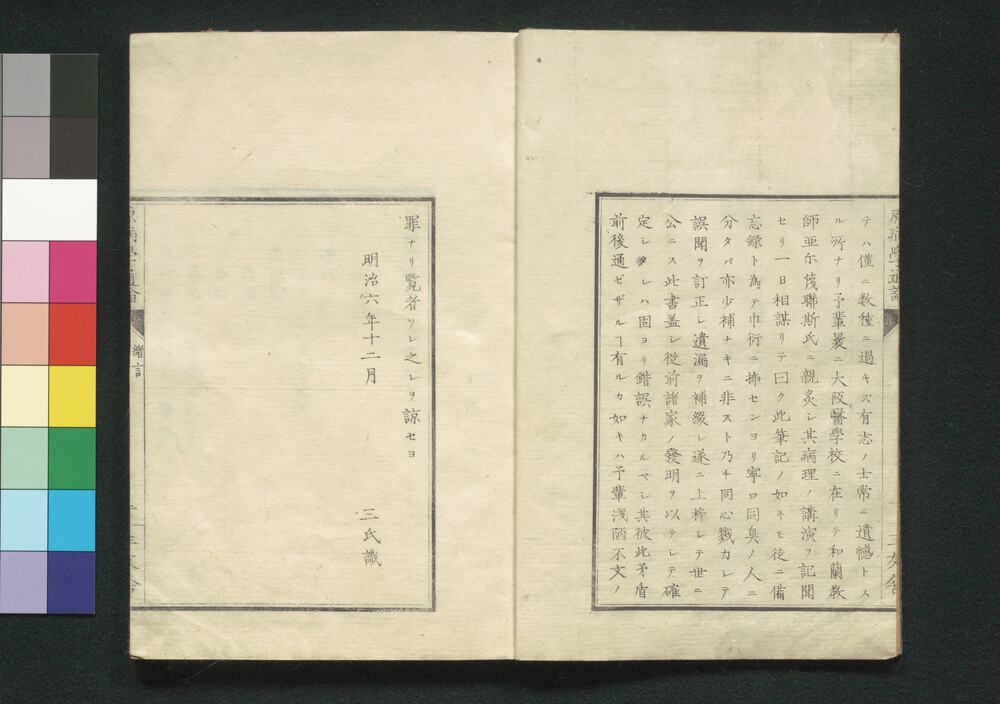 テハ僅ニ数種ニ過キズ有志ノ士常ニ遺憾トス
ル所ナリ予輩曩ニ大阪醫學校ニ在リテ和蘭教
師亜尓蔑聯斯氏ニ親炙シ其病理ノ講演ヲ記聞
セリ一日相謀リテ曰ク此筆記ノ如キモ徒ニ備
忘録ト為テ巾衍ニ挿センヨリ寧ロ同臭ノ人ニ
分タバ亦少補ナキニ非スト乃チ同心戮力シテ
誤聞ヲ訂正シ遺漏ヲ補綴シ遂ニ上梓シテ世ニ
公ニス此書蓋シ従前諸家ノ發明ヲ以テシテ確
定シタレハ固ヨリ錯誤ナカルベシ其彼此矛盾
前後通ゼザルヿ有ルカ如キハ予輩浅陋不文ノ
罪ナリ覧者ソレ之レヲ諒セヨ
明治六年十二月
三氏識
原病學通論
緒言